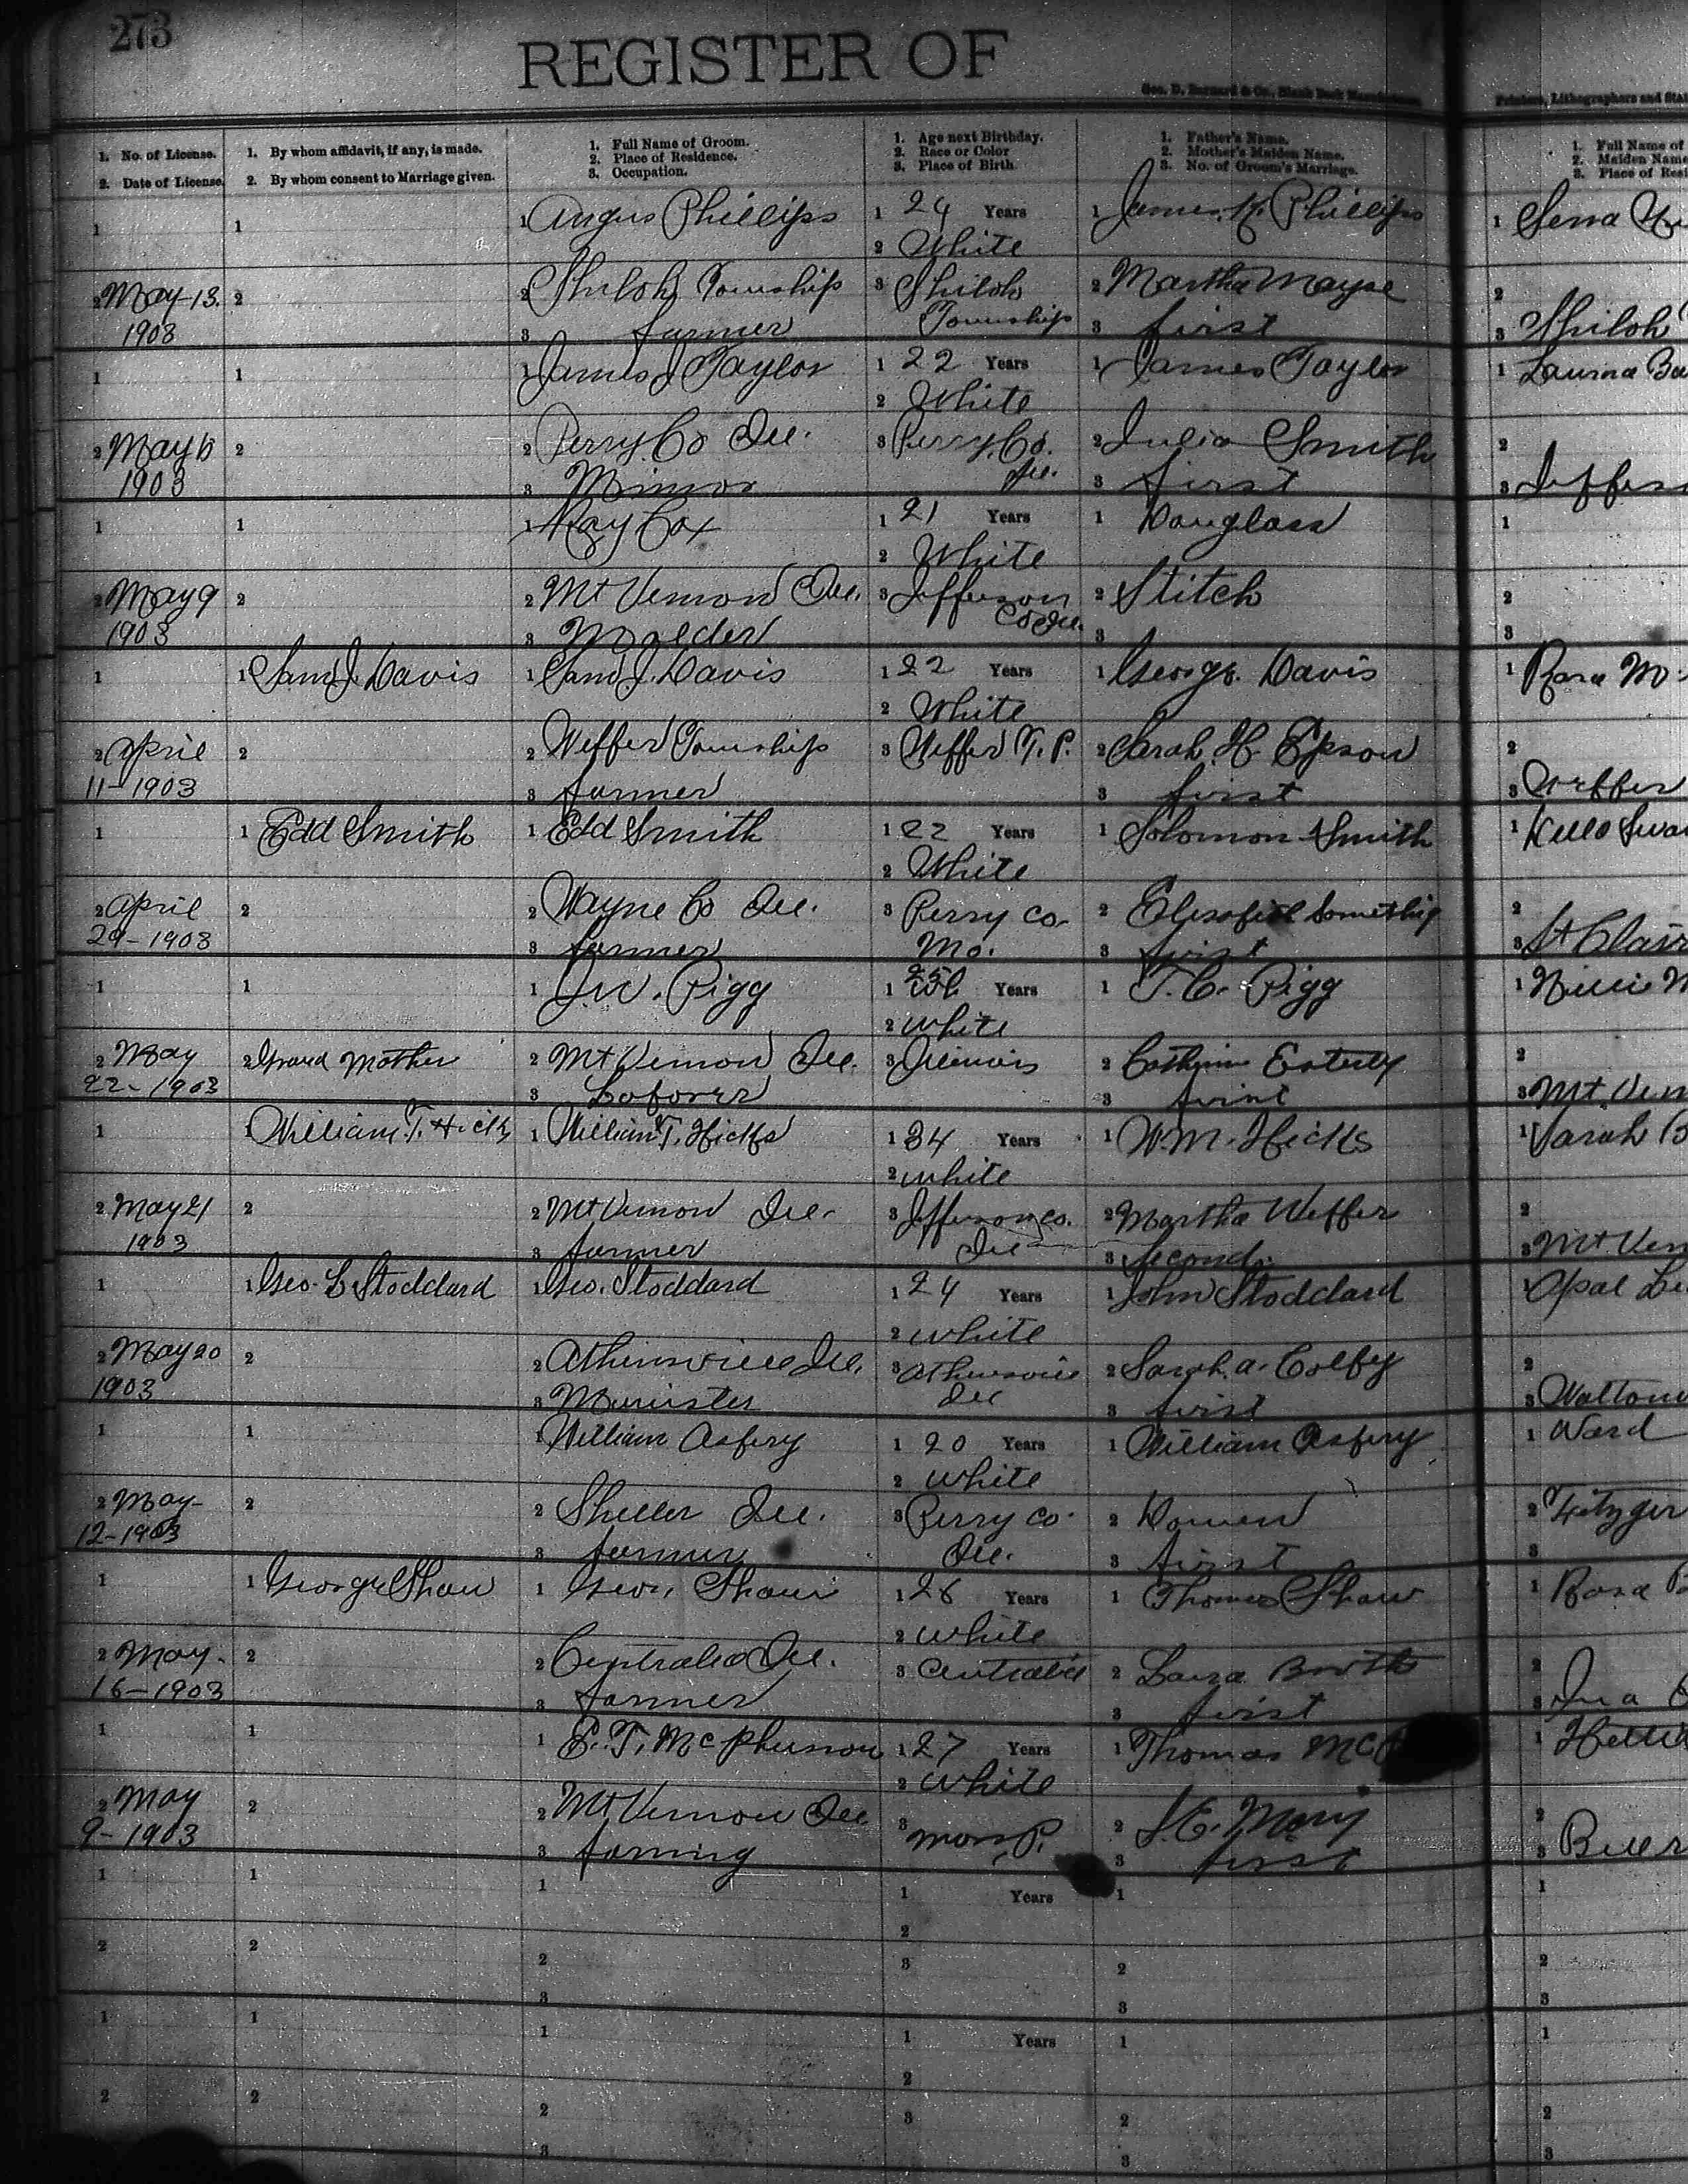 273
REGISTER OF
Geo. D. Barnard & Co., Blank Book
Printers, Lithographers and
1. No. of License.
2. Date of License.
1. By whom affidavit, if any, is made.
2. By whom consent to Marriage given.
1. Full Name of Groom.
2. Place of Residence.
3. Occupation.
1. Age next Birthday.
2. Race or Color
3. Place of Birth.
1. Father's Name.
2. Mother's Maiden Name.
3. No. of Groom's Marriage.
1. Full Name of
2. Maiden Name
3. Place of
1
2 May 13.
1903
1
2
1 Angus Phillips
2 Shiloh Township
3 farmer
1 24 Years
2 White
3 Shiloh
Township
1 James K. Phillips
2 Martha Mayse
3 first
1 Sena
2
3 Shiloh
1
2 May
1903
1
2
1 James J Taylor
2 Perry Co Ill.
3 Minor
1 22 Years
2 White
3 Perry Co.
Ill.
1 James Taylor
2 Julia Smith
3 first
1 Laurna
2
3
1
2 May 9
1903
1
2
1 Ray Cox
2 Mt Vernon Ill.
3 Molder
1 21 Years
2 White
3 Jefferson
Co Ill.
1 Douglass
2 Stitch
3
1
2
3
1
2 April
11-1903
1 Sam J. Davis
2
1 Sam J. Davis
2 Weffer Township
3 farmer
1 22 Years
2 White
3 Weffer T. P.
1 George Davis
2 Sarah H. Epson
3 first
1 Rosa M.
2
3
1
2 April
29-1903
1 Edd Smith
2
1 Edd Smith
2 Wayne Co Ill.
3 farmer
1 22 Years
2 White
3 Perry Co.
Mo.
1 Solomon Smith
2 Something
3 first
1
2
3 St Clair
1
2 May
22-1903
1
2 Grand Mother
1 J.W. Pigg
2 Mt Vernon Ill.
3 Laborer
1 25 Years
2 White
3 Illinois
1 T. C. Pigg
2
3 first
1
2
3 Mt. Ven
1
2 May 21
1903
1 William T. Hicks
2
1 William T. Hicks
2 Mt Vernon Ill.
3 farmer
1 34 Years
2 White
3 Jefferson Co.
Ill
1 W. M. Hicks
2 Martha Weffer
3 Second.
1 Sarah B
2
3 Mt Ven
1
2 May 20
1903
1 Geo. L Stoddard
2
1 Geo. Stoddard
2 Athensville Ill.
3 Minister
1 24 Years
2 White
3 Athensville
Ill
1 John Stoddard
2 Sarah A. Colby
3 first
1 Opal
2
3 Walton
1
2 May
12-1903
1
2
1 William Asbery
2 Sheller Ill.
3 farmer
1 20 Years
2 White
3 Perry Co.
Ill.
1 William Asbery
2
3 first
1 Ward
2 Fitzger
3
1
2 May.
16-1903
1 George Shaw
2
1 Geo. Shaw
2 Centralia Ill.
3 farmer
1 26 Years
2 White
3 Centralia
1 Thomas Shaw
2 Laura Booth
3 first
1 Rosa
2
3
1
2 May
9-1903
1
2
1 E. T. McPherson
2 Mt Vernon Ill
3 farming
1 27 Years
2 White
3
1 Thomas Mc
2
3 first
1
2
3
1
2
1
2
1
2
3
1 Years
2
3
1
2
3
1
2
3
1
2
1
2
1
2
3
1 Years
2
3
1
2
3
1
2
3